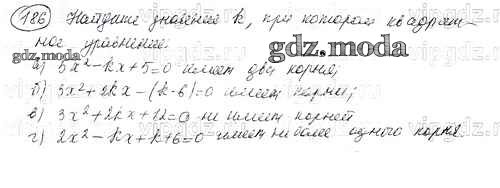 186 Найдите значение k, при котором квадрат-
ное уравнение
gdz.moda
gdz.moda
а) 5x² - kx + 5 = 0 имеет два корня;
б) 3x² + 2kx - (k-6) = 0 имеет корни;
в) 3x² + 2kx + 12 = 0 не имеет корней
г) 2x² - kx + k + 6 = 0 имеет не более одного корня.